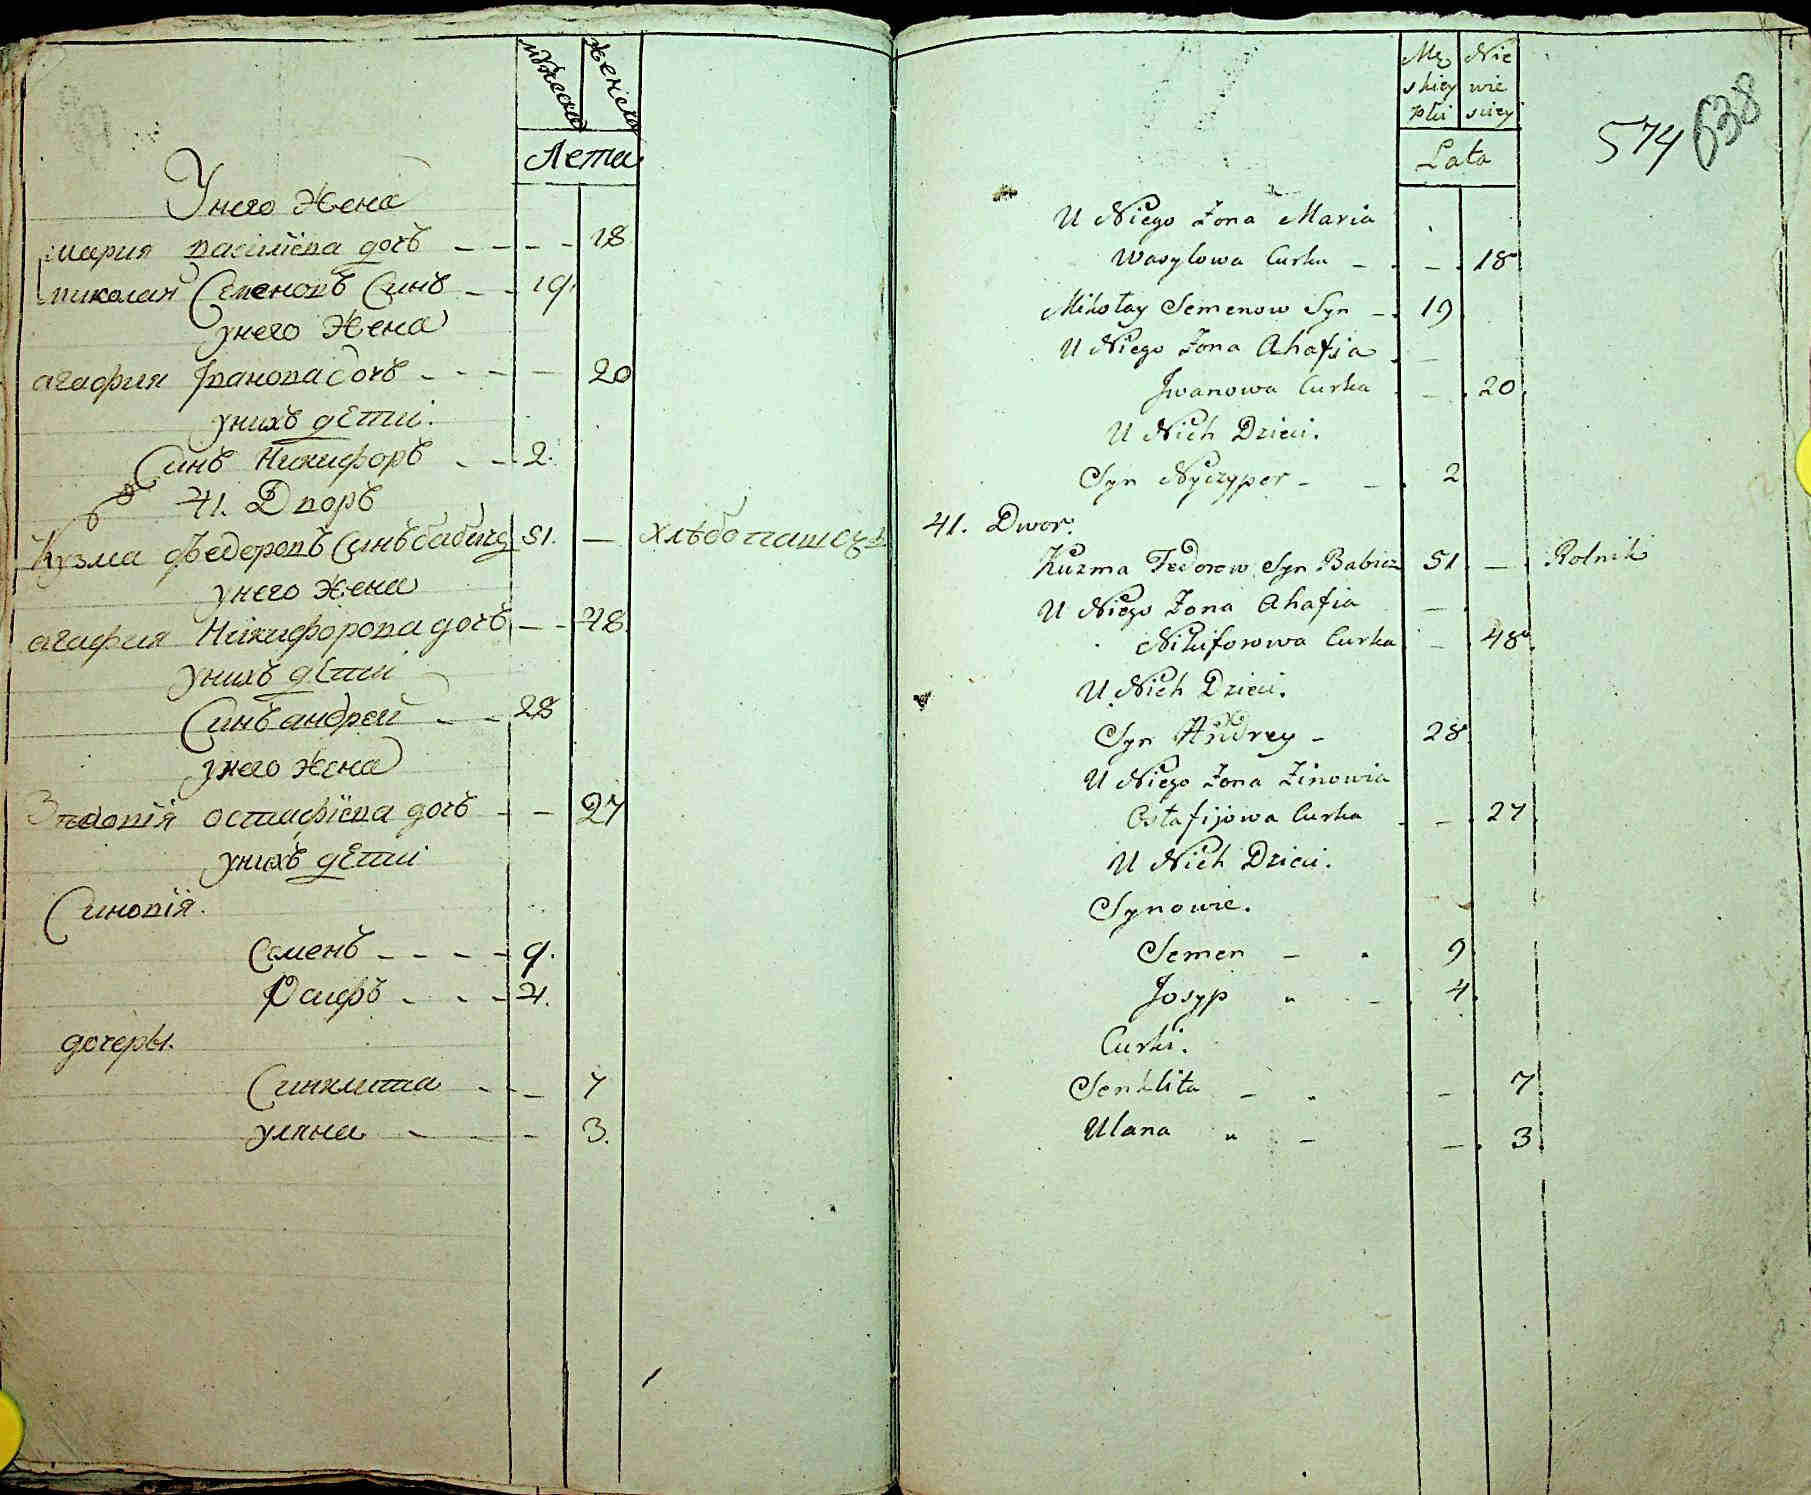 мужеска
женска
Лета
Унего Жена
мария василиева дочъ - - - - 18
николай Семеновъ Синъ - - 19.
унего Жена
агафия Іванова дочъ - - - - 20
унихъ дети.
Синъ Никифоръ - - 2.
41. Дворъ
Кузма федоровъ Синъ бабичъ 51. — хлѣбопашецъ
унего жена
агафия Никифорова дочъ - - 48.
унихъ дети
Синъ андрей - - 28
унего жена
остафіева дочъ - - 27
унихъ дети
Синовія.
Семенъ - - - - 9.
Юсифъ - - - 4.
дочеры.
Синклита - - 7
уляна - - - 3.
Mę Nie
skiey wie
płci sciey
Lata
574 638
U Niego Żona Maria
Wasylowa Curka - - 18
Mikołay Semenow Syn - 19
U Niego Żona Ahafia -
Jwanowa Curka - 20.
U Nich Dzieci.
Syn Nyczypor - - 2
41. Dwor.
Kuzma Fedorow Syn Babicz 51 — Rolnik
U Niego Żona Ahafia —
Nikiforowa Curka - 48.
U Nich Dzieci.
Syn Andrey - 28
U Niego Żona Zinowia
Ostafijowa Curka - - 27
U Nich Dzieci.
Synowie.
Semen - 9
Josyp " - 4
Curki.
Senklita - - 7
Ulana " - - 3